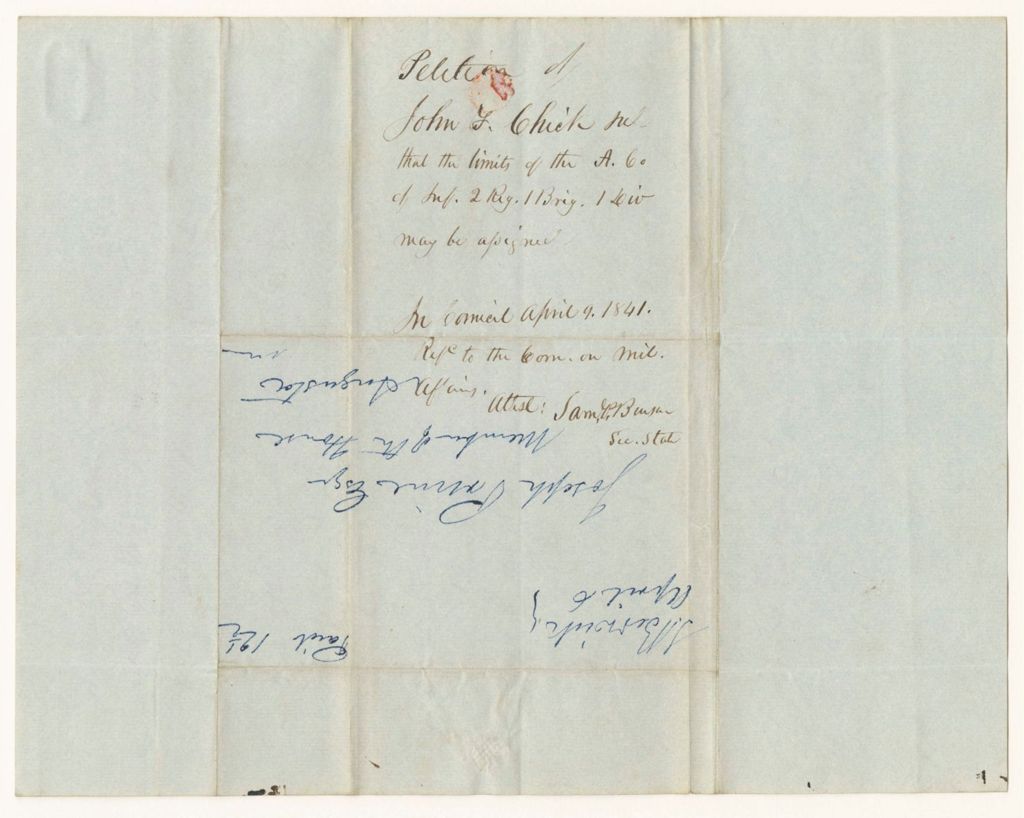 Petition of
John F. Chick
that the limits of the A. Co
of Inf. 2 Reg. 1 Brig. 1 Div
may be assigned
In Council April 9. 1841.
Refd to the Com. on Mil.
Affairs.
Attest: Saml P. Benson
Sec. State
S. Berwick }
April 6
Paid 12½
Joseph Esqr
Member of the House
Augusta